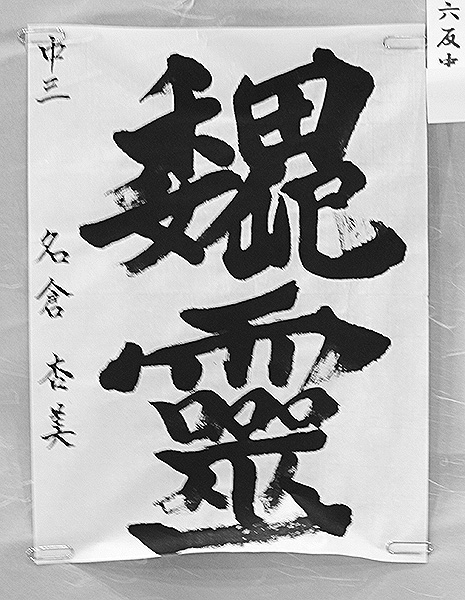 六反中
魏靈
中三 名倉 杏美